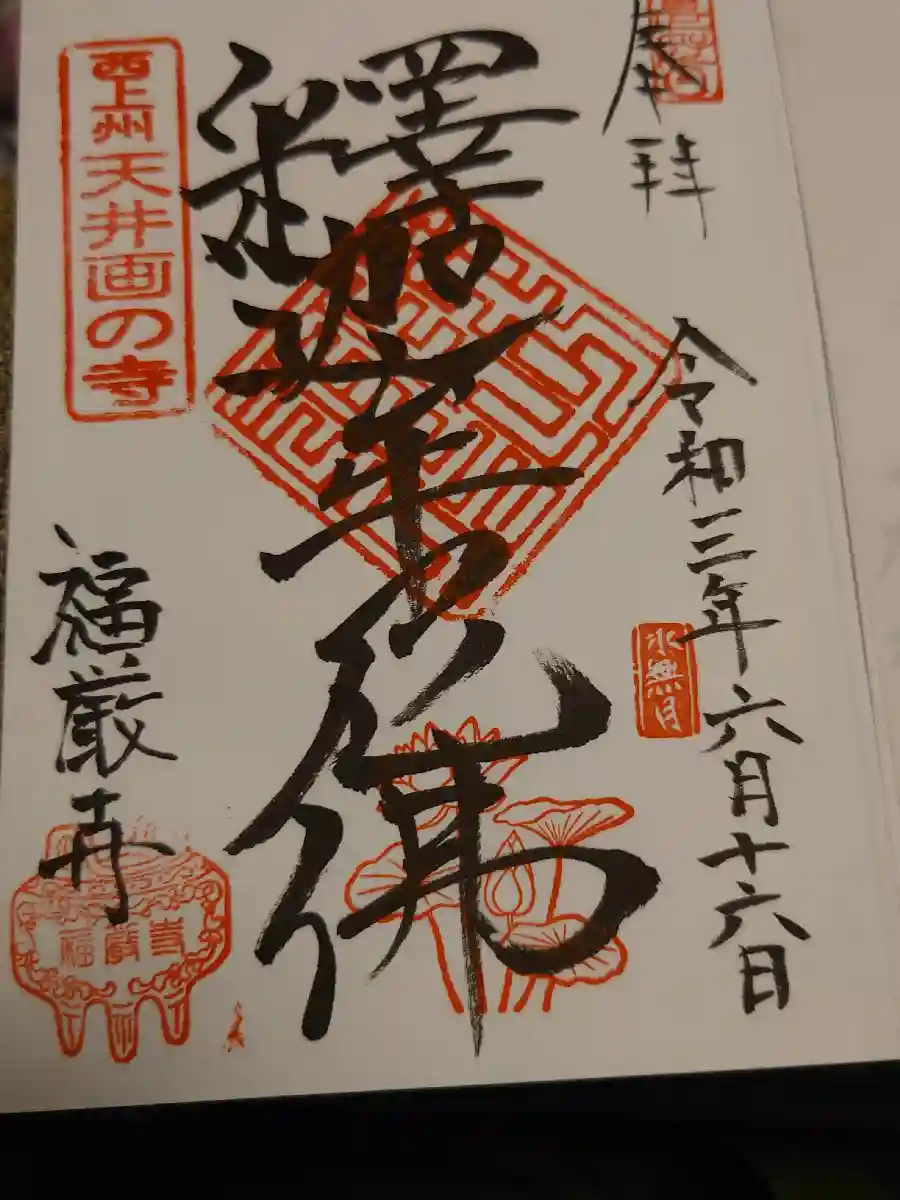 奉拝
令和三年六月十六日
水無月
釋迦牟尼佛
西上州天井画の寺
福厳寺
福嚴寺